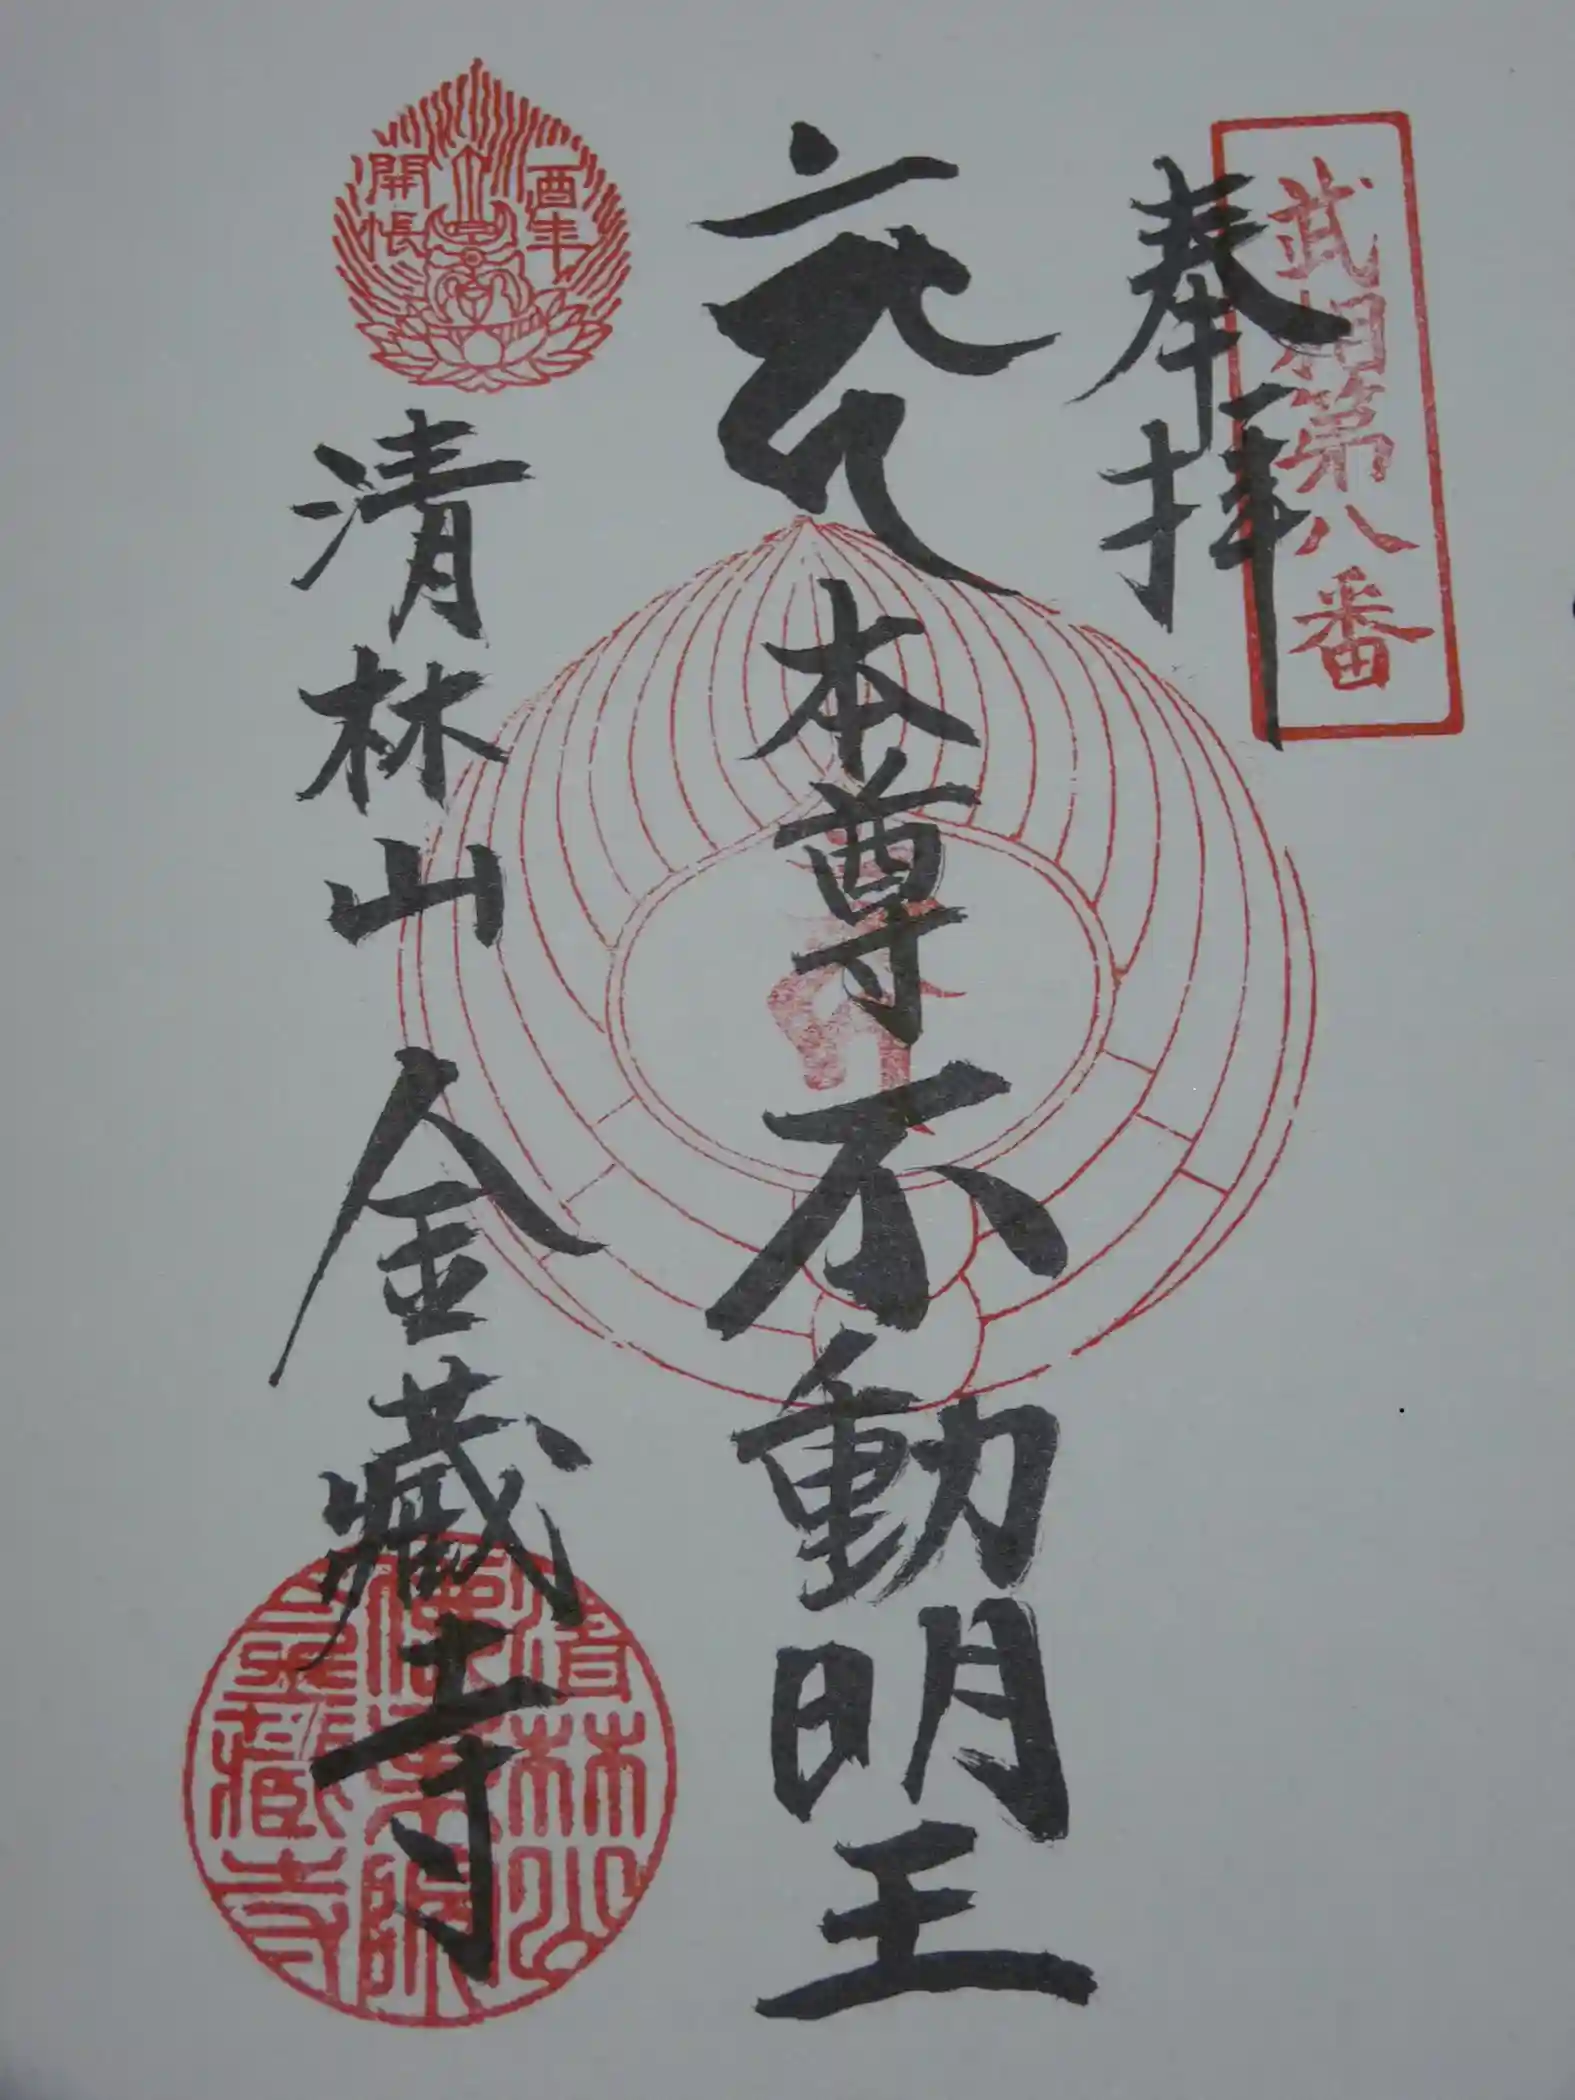 武相第八番
奉拝
本尊不動明王
酉年
開帳
清林山 金藏寺
清林山
金藏寺